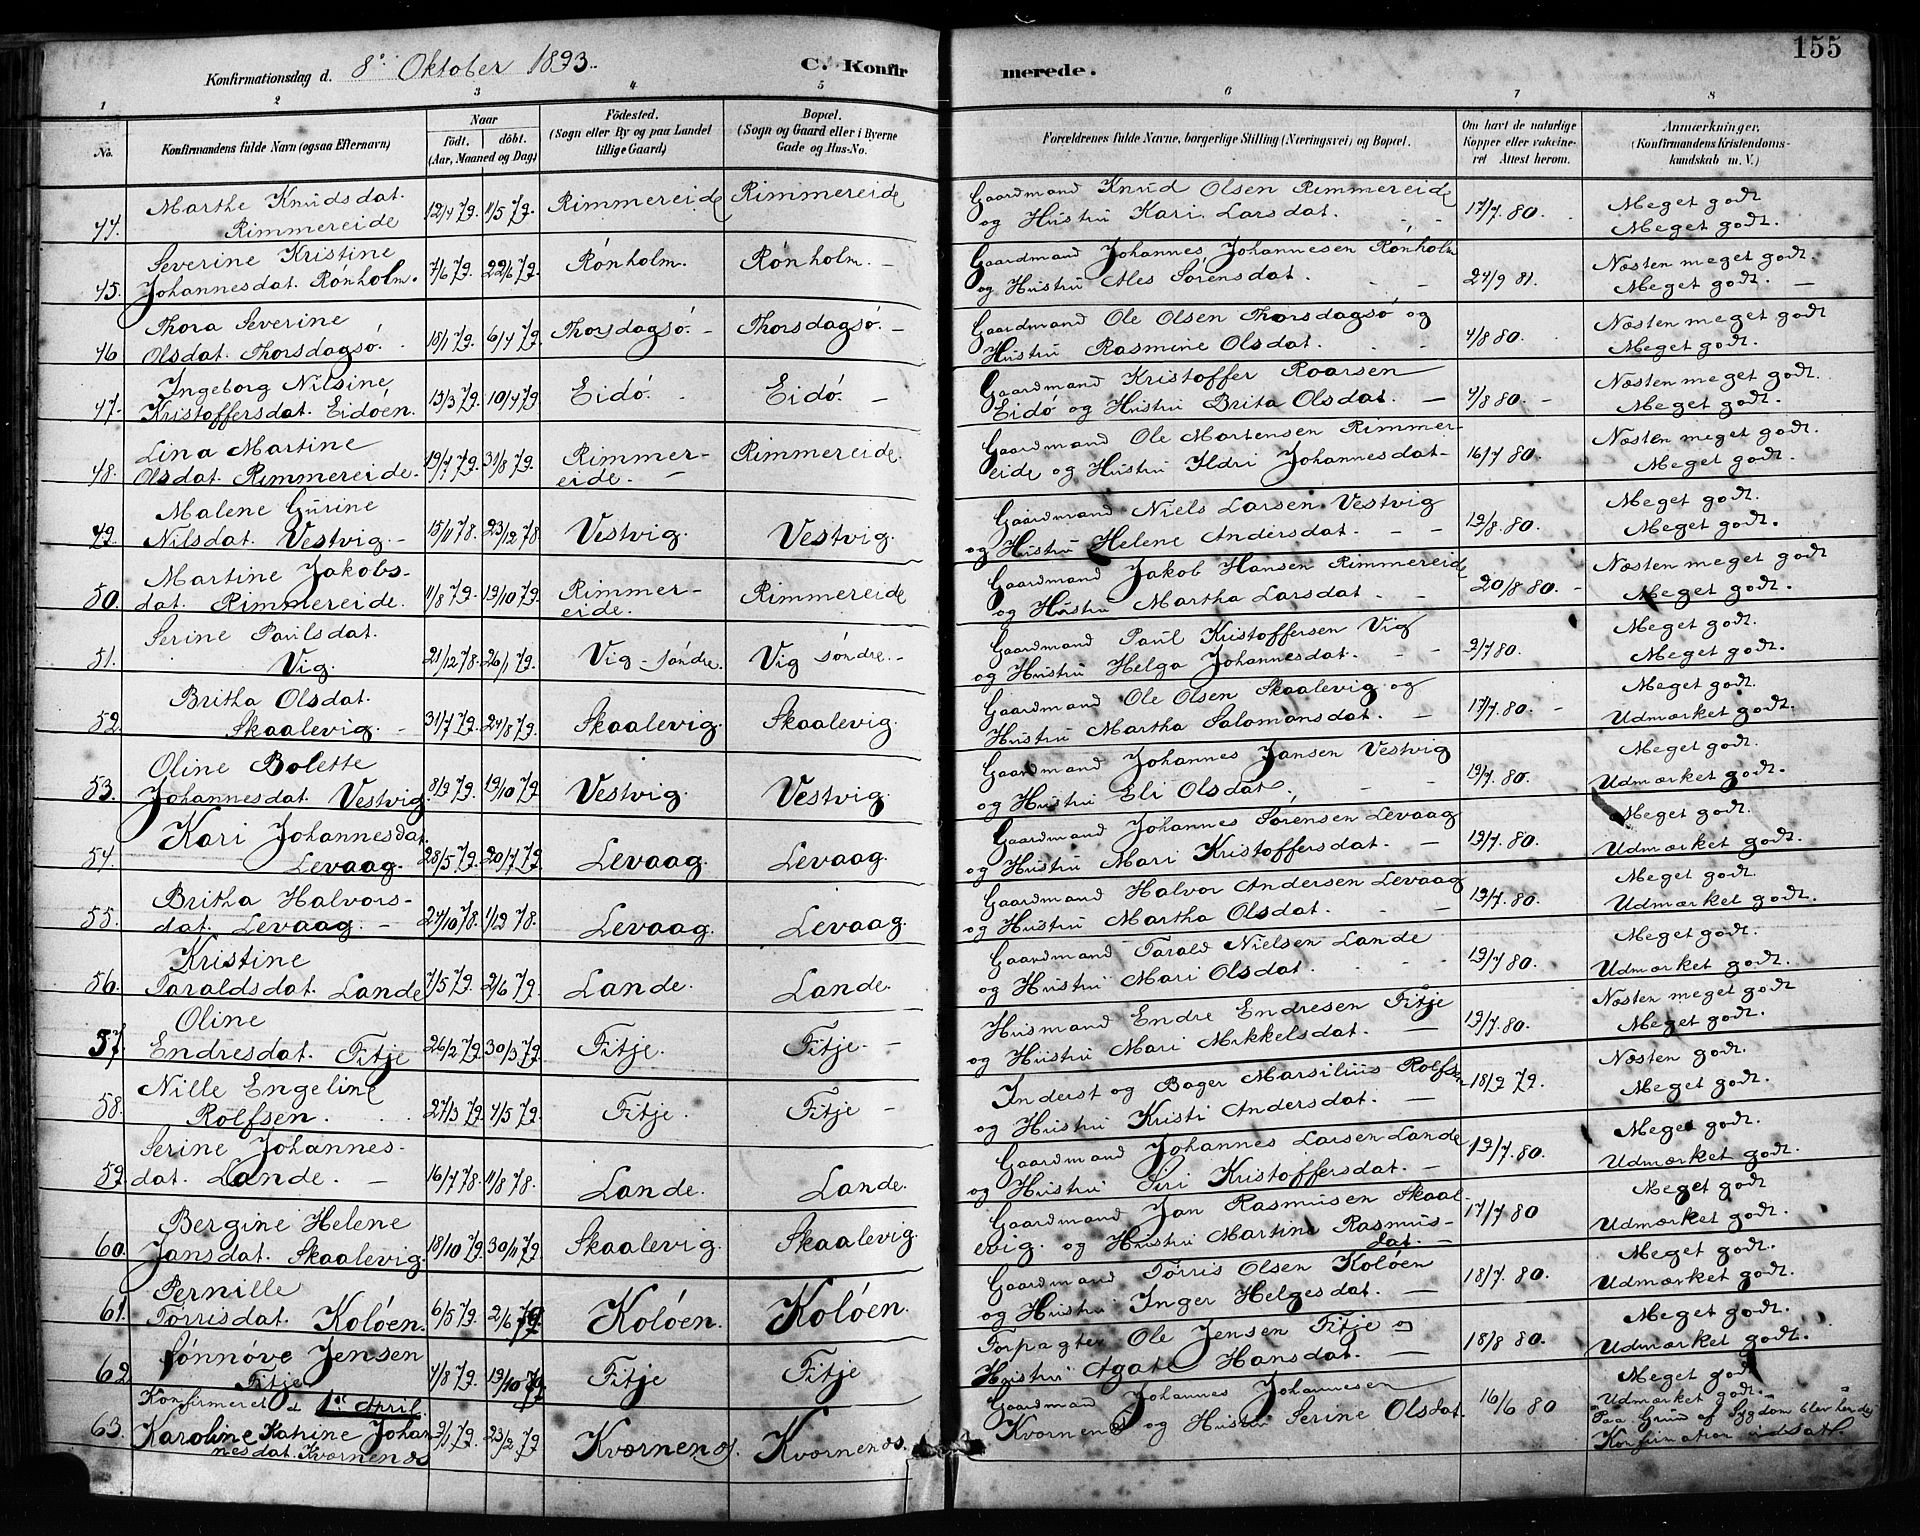 155
Konfirmationsdag d. 8de Oktober 1893. C. Konfirmerede.
1 2 3 4 5 6 7 8
No. Konfirmandens fulde Navn (ogsaa Efternavn) Naar født, døbt. (Aar, Maaned og Dag) Födested. (Sogn eller By og paa Landet tillige Gaard) Bopæl. (Sogn og Gaard eller i Byerne Gade og Hus-No. Forældrenes fulde Navne, borgerlige Stilling (Næringsvei) og Bopæl. Om havt de naturlige Kopper eller vakcineret Attest herom. Anmærkninger, (Konfirmandens Kristendomskundskab m. V.)
Marthe Knudsdat. Gaardmand Knud Olsen Rimmereide Meget godt
44. Rimmereide 12/4 79. 11/5 79. Rimmereide Rimmereide og Hustru Kari Larsdat. 17/7 80. Meget godt.
Severine Kristine Gaardmand Johannes Johannesen Rønholm Næsten meget godt.
45. Johannesdat. Rønholm. 7/6 79. 22/6 79. Rønholm. Rønholm. og Hustru Ales Sørensdat. 27/9 81. Meget godt.
Thora Severine Gaardmand Ole Olsen Thorsdagsø og Næsten meget godt.
46 Olsdat. Thorsdagsø. 18/1 79. 6/4 79. Thorsdagsø. Thorsdagsø. Hustru Rasmine Olsdat. 4/8 80. Meget godt.
Ingeborg Nilsine Gaardmand Kristoffer Roarsen Næsten meget godt.
47. Kristoffersdat. Eidøen. 13/3 79. 10/4 79 Eidø. Eidø. Eidø og Hustru Brita Olsdat. 4/8 80. Meget godt.
Lina Martine Gaardmand Ole Martensen Rimmer- Næsten meget godt.
48. Olsdat. Rimmereide. 19/7 79. 31/8 79. Rimmereide. Rimmereide. eide og Hustru Ildri Johannesdat 16/7 80. Meget godt.
Malene Gurine Gaardmand Niels Larsen Vestvig Meget godt.
49. Nilsdat. Vestvig. 15/11 78. 23/12 78. Vestvig. Vestvig. og Hustru Helene Andersdat. 19/8. 80. Meget godt.
Martine Jakobs- Gaardmand Jakob Hansen Rimmereide Næsten meget godt
50. dat. Rimmereide. 11/8 79. 19/10 79. Rimmereide. Rimmereide og Hustru Martha Larsdat. 20/8 80. Meget godt.
Serine Paulsdat. Gaardmand Paul Kristoffersen Vig Meget godt.
51. Vig. 21/12 78. 26/1 79. Vig - søndre. Vig søndre. og Hustru Helga Johannesdat. 2/7 80. Meget godt.
Britha Olsdat. Gaardmand Ole Olsen Skaalevig og Meget godt.
52. Skaalevig. 31/7 79. 24/8 79. Skaalevig. Skaalevig. Hustru Martha Salomonsdat. 17/7. 80. Udmærket godt.
Oline Bolette Gaardmand Johannes Jansen Vestvig Meget godt.
53. Johannesdat. Vestvig 8/9 79. 19/10 79. Vestvig. Vestvig. og Hustru Eli Olsdat. 19/7. 80. Udmærket godt.
Kari Johannesdat. Gaardmand Johannes Sørensen Levaag Meget godt.
54. Levaag. 28/5 79. 20/7 79. Levaag. Levaag. og Hustru Mari Kristoffersdat. 19/7. 80. Udmærket godt.
Britha Halvors- Gaardmand Halvor Andersen Levaag Meget godt.
55. dat. Levaag. 27/10 78. 1/12 78. Levaag. Levaag. og Hustru Martha Olsdat. 19/7. 80. Udmærket godt.
Kristine Gaardmand Tarald Nielsen Lande Meget godt.
56. Taraldsdat. Lande 1/5 79. 2/6 79. Lande. Lande. og Hustru Mari Olsdat. 19/7 80. Udmærket godt.
Oline Husmand Endre Endresen Fitje Næsten meget godt
57. Endresdat. Fitje 26/2 79. 30/3 79. Fitje. Fitje. og Hustru Mari Mikkelsdat. 19/7. 80. Meget godt.
Nille Engeline Inderst og Bager Marsilius Rolfsen Næsten godt.
58. Rolfsen. 27/3 79. 4/5 79. Fitje. Fitje og Hustru Kristi Andersdat. 18/9 79. Meget godt.
Serine Johannes- Gaardmand Johannes Larsen Lande Meget godt.
59. dat. Lande. 16/7 78. 11/8 78. Lande. Lande. og Hustru Siri Kristoffersdat. 19/7. 80. Udmærket godt.
Bergine Helene Gaardmand Jan Rasmusen Skaal- Meget godt
60. Jansdat. Skaalevig. 18/10 79. 30/11 79. Skaalevig. Skaalevig. evig. og Hustru Martine Rasmusdat. 17/7 80 Udmærket godt.
Pernille Gaardmand Tørris Olsen Koløen Meget godt.
61. Tørrisdat. Koløen. 6/5 79. 2/6 79 Koløen. Koløen. og Hustru Inger Helgesdat. 18/7. 80. Udmærket godt.
Sønnøve Jensen Forpagter Ole Jensen Fitje og Meget godt.
62 Fitje 4/8 79. 19/10 79. Fitje Fitje Hustru Agat Hansdat. 18/8 80. Udmærket godt.
Konfirmeret d 1ste April. Gaardmand Johannes Johannesen Meget godt
63. Karoline Katrine Johan 3/1 79. 23/2 79 Kvornenæs. Kvornenæs. Kvornenæs og Hustru Serine Olsdat. 16/6 80 Udmærket godt.
nesdat. Kvornenæs Paa Grund af Sygdom blev hendes
Konfirmation udsat.